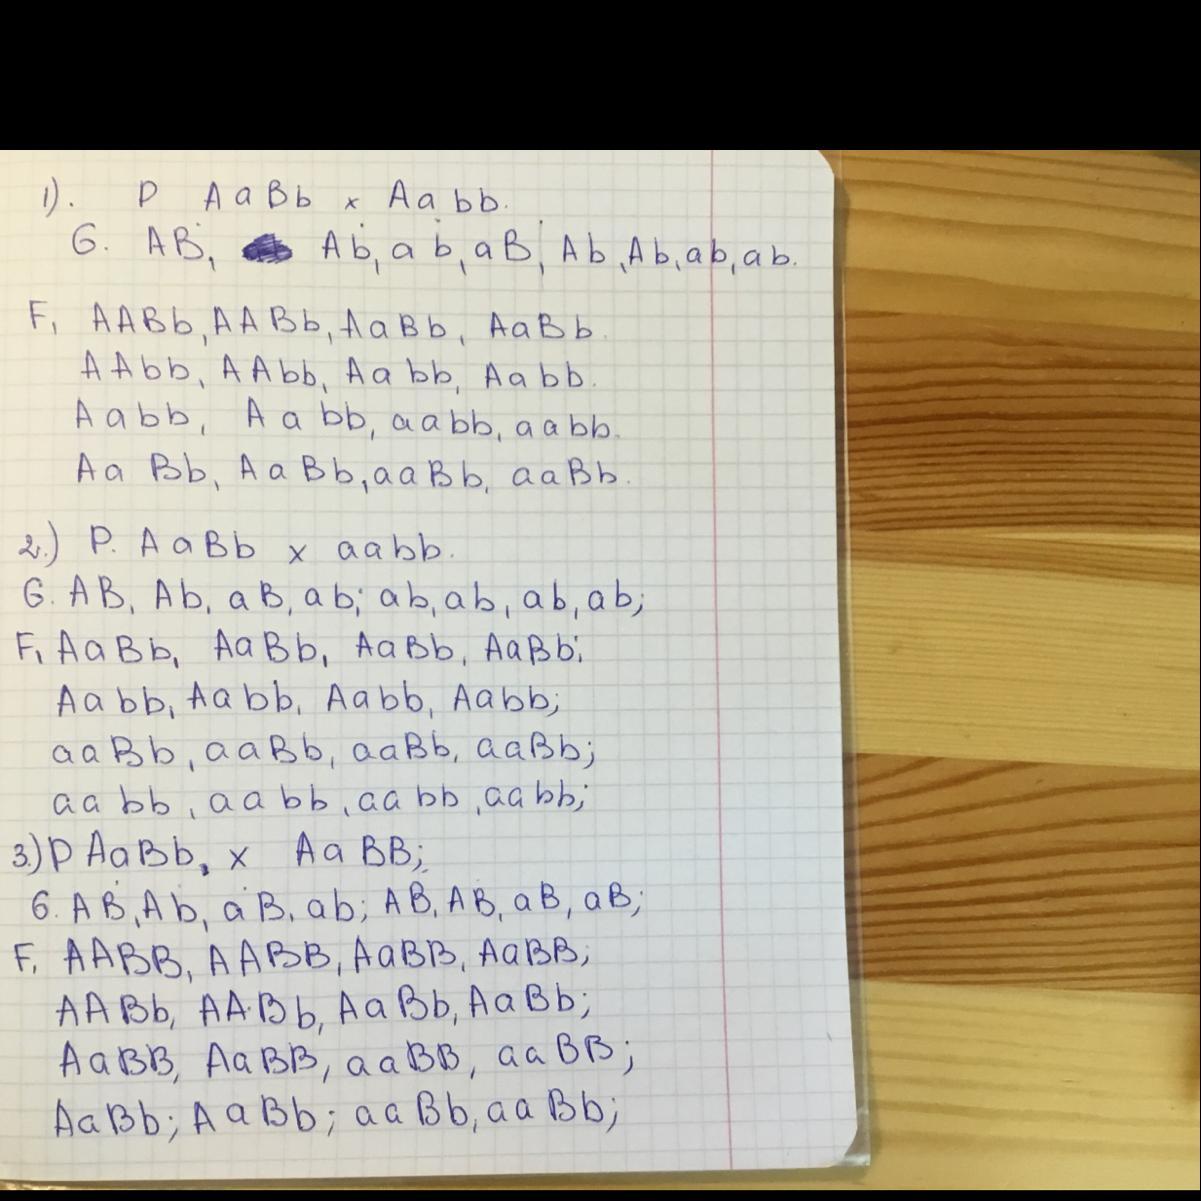 1). P AaBb x Aabb.
G. AB, Ab, ab, aB, Ab, Ab, ab, ab.
F1 AABb, AABb, AaBb, AaBb.
AAbb, AAbb, Aabb, Aabb.
Aabb, Aabb, aabb, aabb.
AaBb, AaBb, aaBb, aaBb.
2.) P. AaBb x aabb.
G. AB, Ab, aB, ab; ab, ab, ab, ab;
F1 AaBb, AaBb, AaBb, AaBb;
Aabb, Aabb, Aabb, Aabb;
aaBb, aaBb, aaBb, aaBb;
aabb, aabb, aabb, aabb;
3.) P AaBb, x AaBB;
G. AB, Ab, aB, ab; AB, AB, aB, aB;
F1 AABB, AABB, AaBB, AaBB;
AABb, AABb, AaBb, AaBb;
AaBB, AaBB, aaBB, aaBB;
AaBb; AaBb; aaBb, aaBb;